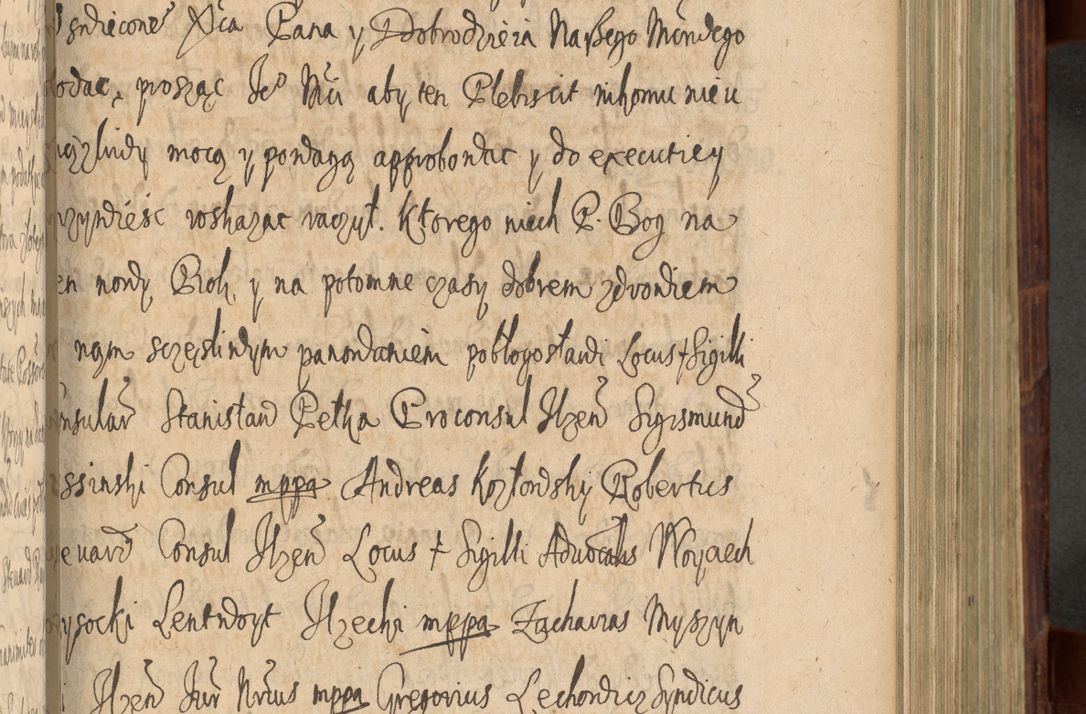 Xcia Pana y Dobrodzieia Naszego Mciwego
prosząc Jeo Mci aby ten Plebiscit nikomu nie u
mocą y powagą approbowac y do executiey
roskazac raczył. Ktorego niech P. Bog na
ten nowy Rok, y na potomne czasy dobrem zdrowiem
nąm sczęsliwym panowaniem pobłogosławi Locus + Sigilli
Consular Stanisław Petka Proconsul Ilzen Sigismund
ssinski Consul mppa Andreas Kozłowsky Robertus
Consul Ilzen Locus + Sigilli Advocatis Woyciech
ysocki Lentwoyt Ilzecki mppa Zacharias Myszyn
Ilzen Jur Nrius mppa Gregorius Lechowicz Syndicus